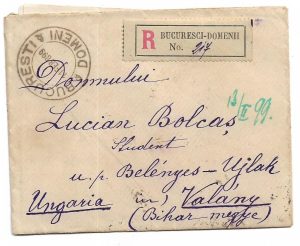 BUCURESCI-DOMENII
R No. 217
BUCURESTI * DOMENII
Domnului
Lucian Bolcaș
Student
u.p Belényes-Ujlak
Ungaria in) Valány
(Bihar megye)
13/II 99.